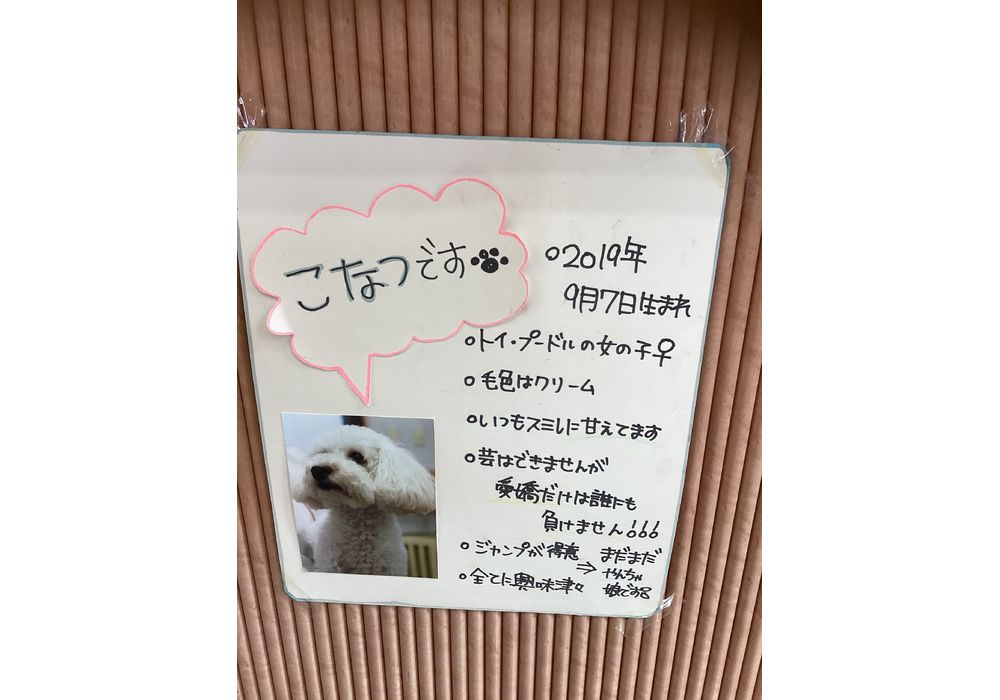 こなつです
○2019年
9月7日生まれ
○トイ・プードルの女の子♀
○毛色はクリーム
○いつもスミレに甘えてます
○芸はできませんが
愛嬌だけは誰にも
負けません!!!
○ジャンプが得意
○全てに興味津々
⇒まだまだ
やんちゃ
娘です